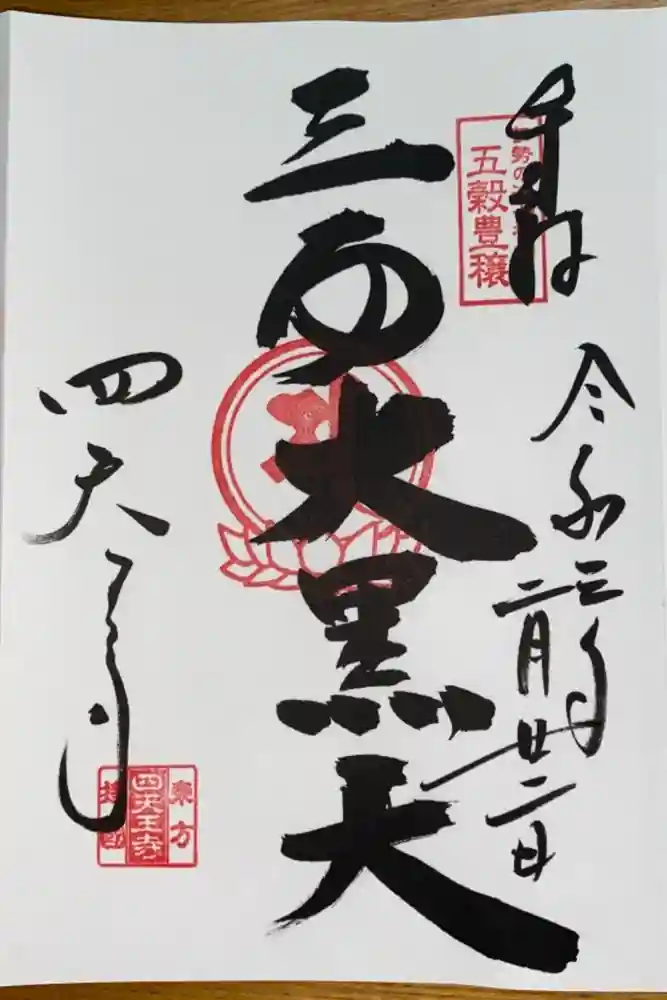 奉拝
令和三年
二月廿二日
五穀豊穣
三面大黒天
四天王寺
東方
四天王寺